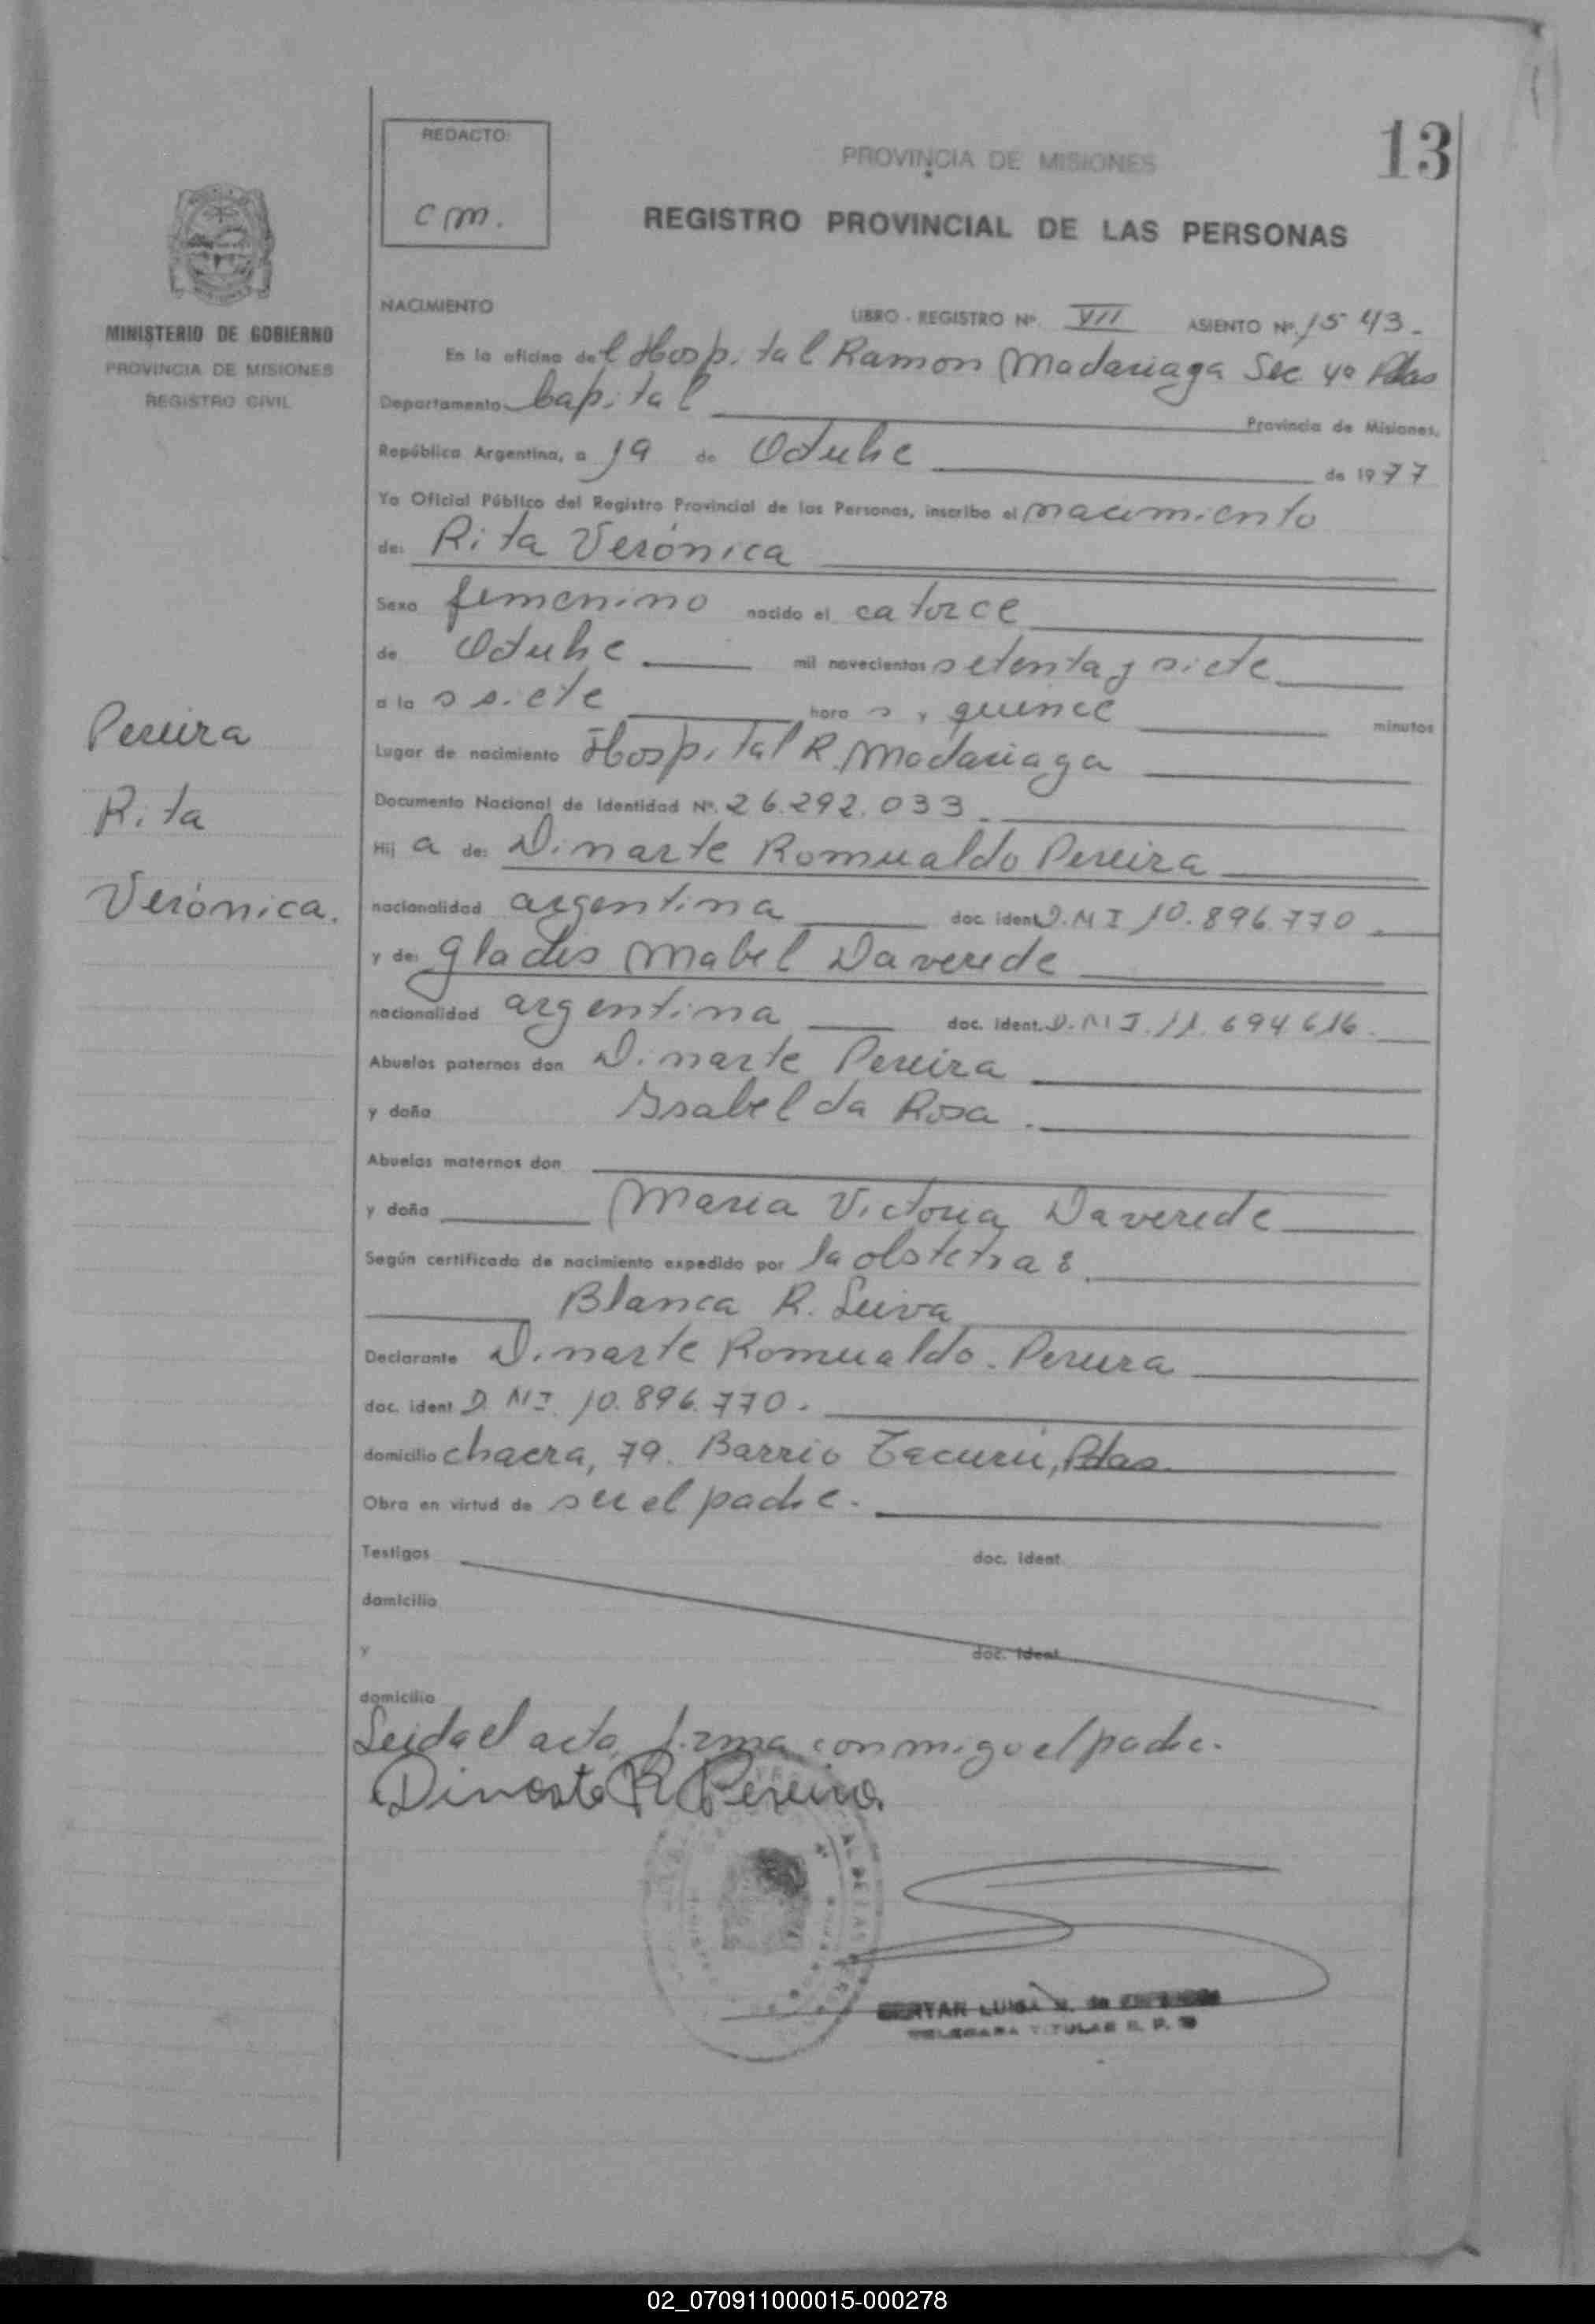 13
REDACTO:
cm.
PROVINCIA DE MISIONES
REGISTRO PROVINCIAL DE LAS PERSONAS
MINISTERIO DE GOBIERNO
PROVINCIA DE MISIONES
REGISTRO CIVIL
NACIMIENTO LIBRO - REGISTRO Nº. VII ASIENTO Nº. 1543.
En la oficina del Hospital Ramon Madariaga Sec 4º Pdas
Departamento Capital Provincia de Misiones,
República Argentina, a 19 de Octubre de 1977
Yo Oficial Público del Registro Provincial de las Personas, inscribo el nacimiento
de: Rita Verónica
Sexo femenino nacido el catorce
de Octubre mil novecientos setenta y siete
a las siete horas y quince minutos
Lugar de nacimiento Hospital R. Madariaga
Documento Nacional de Identidad Nº. 26.292.033.
Hija de: Dinarte Romualdo Pereira
nacionalidad argentina doc. ident. D.N.I 10.896.770.
y de: Gladis Mabel Daverede
nacionalidad argentina doc. ident. D.N.I. 11.694.616.
Abuelos paternos don Dinarte Pereira
y doña Isabel da Rosa.
Abuelos maternos don
y doña Maria Victoria Daverede
Según certificado de nacimiento expedido por la obstetra:
Blanca R. Leiva
Declarante Dinarte Romualdo. Pereira
doc. ident D.N.I. 10.896.770.
domicilio chacra, 79. Barrio Tacurú, Pdas.
Obra en virtud de ser el padre.
Testigos doc. ident.
domicilio
y doc. ident.
domicilio
Leida el acta, firma conmigo el padre.
Dinarte R Pereira
Pereira
Rita
Verónica.
LUISA
TITULAR R. P.
02_070911000015-000278